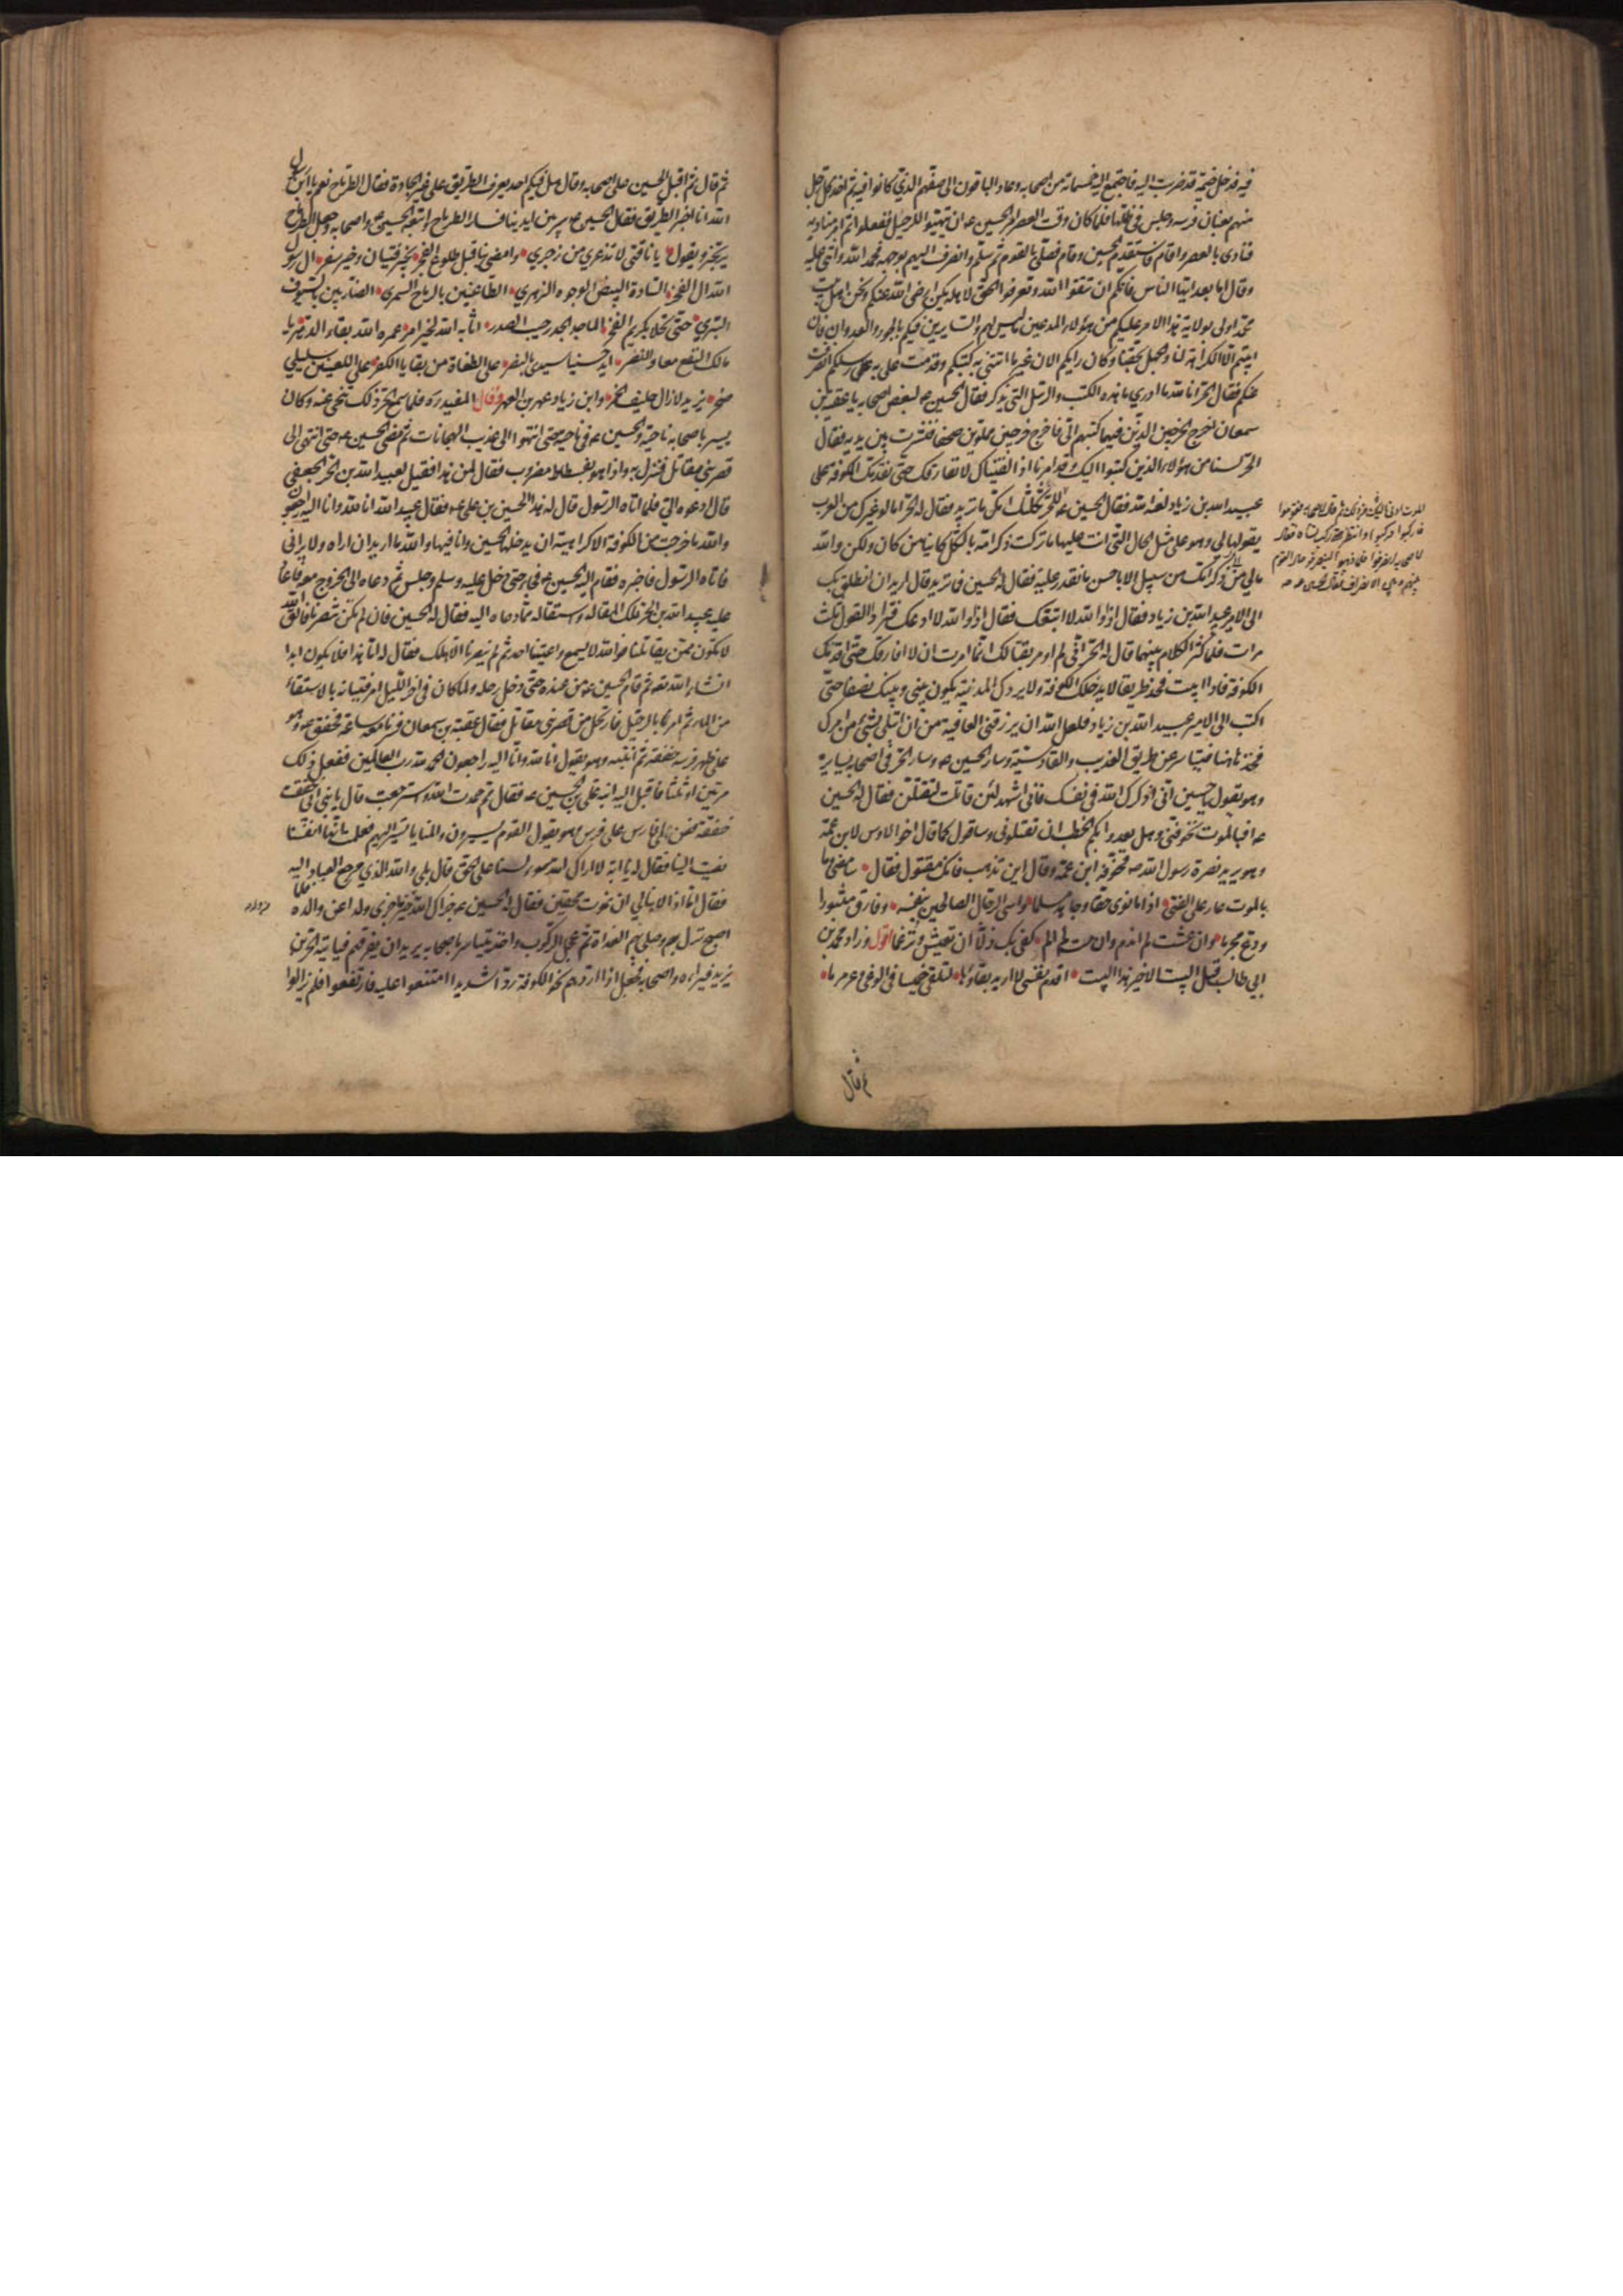 فيه فدخل خيمة قد ضربت اليه فاجتمع اليه خمسمائة من اصحابه وعاد الباقون الى صفهم الذي كانوا فيه ثم اخذ كل رجل
منهم بعنان فرسه وجلس في ظلها فلما كان وقت العصر امر الحسين ع ان يتهيئوا للرحيل ففعلوا ثم امر مناديه
فنادى بالعصر واقام فاستقدم الحسين وقام فصلى بالقوم ثم سلم وانصرف اليهم بوجهه فحمد الله واثنى عليه
وقال اما بعد ايها الناس فانكم ان تتقوا الله وتعرفوا الحق لاهله يكن ارضى لله عنكم ونحن اهل بيت
محمد اولى بولاية هذا الامر عليكم من هؤلاء المدعين ما ليس لهم والسايرين فيكم بالجور والعدوان فان
ابيتم الا الكراهة لنا والجهل بحقنا وكان رايكم الان غير ما اتتني به كتبكم وقدمت علي به رسلكم انصرفت
عنكم فقال الحر انا والله ما ادري ما هذه الكتب والرسل التي تذكر فقال الحسين ع لبعض اصحابه يا عقبة بن
سمعان اخرج الخرجين الذين فيهما كتبهم الي فاخرج خرجين مملوين صحفا فنثرت بين يديه فقال
الحر لسنا من هؤلاء الذين كتبوا اليك وقد امرنا اذا لقيناك لا نفارقك حتى نقدمك الكوفة على
عبيد الله بن زياد لعنه الله فقال الحسين ع للحر ثكلتك امك ما تريد فقال له الحر اما لو غيرك من العرب
يقولها لي وهو على مثل الحال التي انت عليها ما تركت ذكر امه بالثكل كاينا من كان ولكن والله
ما لي من ذكر امك من سبيل الا باحسن ما نقدر عليه فقال له الحسين فما تريد قال اريد ان انطلق بك
الى الامير عبيد الله بن زياد فقال اذا والله لا اتبعك فقال اذا والله لا ادعك فترادا القول ثلث
مرات فلما كثر الكلام بينهما قال له الحر اني لم اومر بقتالك انما امرت ان لا افارقك حتى اقدمك
الكوفة فاذا ابيت فخذ طريقا لا يدخلك الكوفة ولا يردك الى المدينة يكون بيني وبينك نصفا حتى
اكتب الى الامير عبيد الله بن زياد فلعل الله ان يرزقني العافية من ان ابتلى بشيء من امرك
فخذ هاهنا فتياسر عن طريق العذيب والقادسية وسار الحسين ع وسار الحر في اصحابه يسايره
وهو يقول يا حسين اني اذكرك الله في نفسك فاني اشهد لئن قاتلت لتقتلن فقال له الحسين
ع افبالموت تخوفني وهل يعدو بكم الخطب ان تقتلوني وساقول كما قال اخو الاوس لابن عمه
وهو يريد نصرة رسول الله ص فخوفه ابن عمه وقال اين تذهب فانك مقتول فقال سامضي وما
بالموت عار على الفتى اذا ما نوى حقا وجاهد مسلما وواسى الرجال الصالحين بنفسه وفارق مثبورا
وودع مجرما فان عشت لم اندم وان مت لم الم كفى بك ذلا ان تعيش وترغما اقول وزاد محمد بن
ابي طالب قبل البيت الاخير هذا البيت اقدم نفسي لا اريد بقاءها لتلقى خميسا في الوغى وعرمرما
الموت ادنى اليك من ذلك ثم قال لاصحابه قوموا
فاركبوا فركبوا وانتظر حتى ركبت نساؤه فقال
لاصحابه انصرفوا فلما ذهبوا لينصرفوا حال القوم
بينهم وبين الانصراف فقال الحسين ع
ثم قال
ثم قال ثم اقبل الحسين على اصحابه وقال هل فيكم احد يعرف الطريق على غير الجادة فقال الطرماح نعم يا ابن رسول
الله انا اخبر الطريق فقال الحسين ع سر بين ايدينا فسار الطرماح واتبعه الحسين ع واصحابه وجعل الطرماح
يرتجز ويقول يا ناقتي لا تذعري من زجري وامضي بنا قبل طلوع الفجر بخير فتيان وخير سفر ال رسول
الله ال الفخر السادة البيض الوجوه الزهري الطاعنين بالرماح السمري الضاربين بالسيوف
البتري حتى تحلى بكريم الفخر الماجد الجد رحيب الصدر اثابه الله لخير امر عمره الله بقاء الدهر يا
مالك النفع معا والنصر ايد حسينا سيدي بالنصر على الطغاة من بقايا الكفر على اللعينين سليلي
صخر يزيد لا زال حليف الخمر وابن زياد عهر بن العهر وقال المفيد ره فلما سمع الحر ذلك تنحى عنه وكان
يسير باصحابه ناحية والحسين ع في ناحية حتى انتهوا الى عذيب الهجانات ثم مضى الحسين ع حتى انتهى الى
قصر بني مقاتل فنزل به واذا هو بفسطاط مضروب فقال لمن هذا فقيل لعبيد الله بن الحر الجعفي
قال ادعوه الي فلما اتاه الرسول قال له هذا الحسين بن علي ع فقال عبيد الله انا لله وانا اليه راجعون
والله ما خرجت من الكوفة الا كراهية ان يدخلها الحسين وانا فيها والله ما اريد ان اراه ولا يراني
فاتاه الرسول فاخبره فقام اليه الحسين ع فجاء حتى دخل عليه وسلم وجلس ثم دعاه الى الخروج معه فاعاد
عليه عبيد الله بن الحر تلك المقالة واستقاله مما دعاه اليه فقال له الحسين فان لم تكن تنصرنا فاتق الله
لا تكون ممن يقاتلنا فوالله لا يسمع واعيتنا احد ثم لم ينصرنا الا هلك فقال له اما هذا فلا يكون ابدا
انشاء الله تعه ثم قام الحسين ع من عنده حتى دخل رحله ولما كان في اخر الليل امر فتيانه بالاستقاء
من الماء ثم امر بالرحيل فارتحل من قصر بني مقاتل فقال عقبة بن سمعان فسرنا معه ساعة فخفق ع وهو
على ظهر فرسه خفقة ثم انتبه وهو يقول انا لله وانا اليه راجعون والحمد لله رب العالمين ففعل ذلك
مرتين او ثلثا فاقبل اليه ابنه علي بن الحسين ع فقال مم حمدت الله واسترجعت قال يا بني اني خفقت
خفقة فعن لي فارس على فرس وهو يقول القوم يسيرون والمنايا تسير اليهم فعلمت انها انفسنا
نعيت الينا فقال له يا ابة لا اراك الله سوء السنا على الحق قال بلى والله الذي مرجع العباد اليه
فقال اننا اذا لا نبالي ان نموت محقين فقال له الحسين ع جزاك الله خير ما جزى ولدا عن والده فلما
اصبح نزل بهم وصلى بهم الغداة ثم عجل الركوب واخذ يتياسر باصحابه يريد ان يفرقهم فياتيه الحر بن
يزيد فيرده واصحابه فجعل اذا اردهم نحو الكوفة ردا شديدا امتنعوا عليه فارتفعوا فلم يزالوا